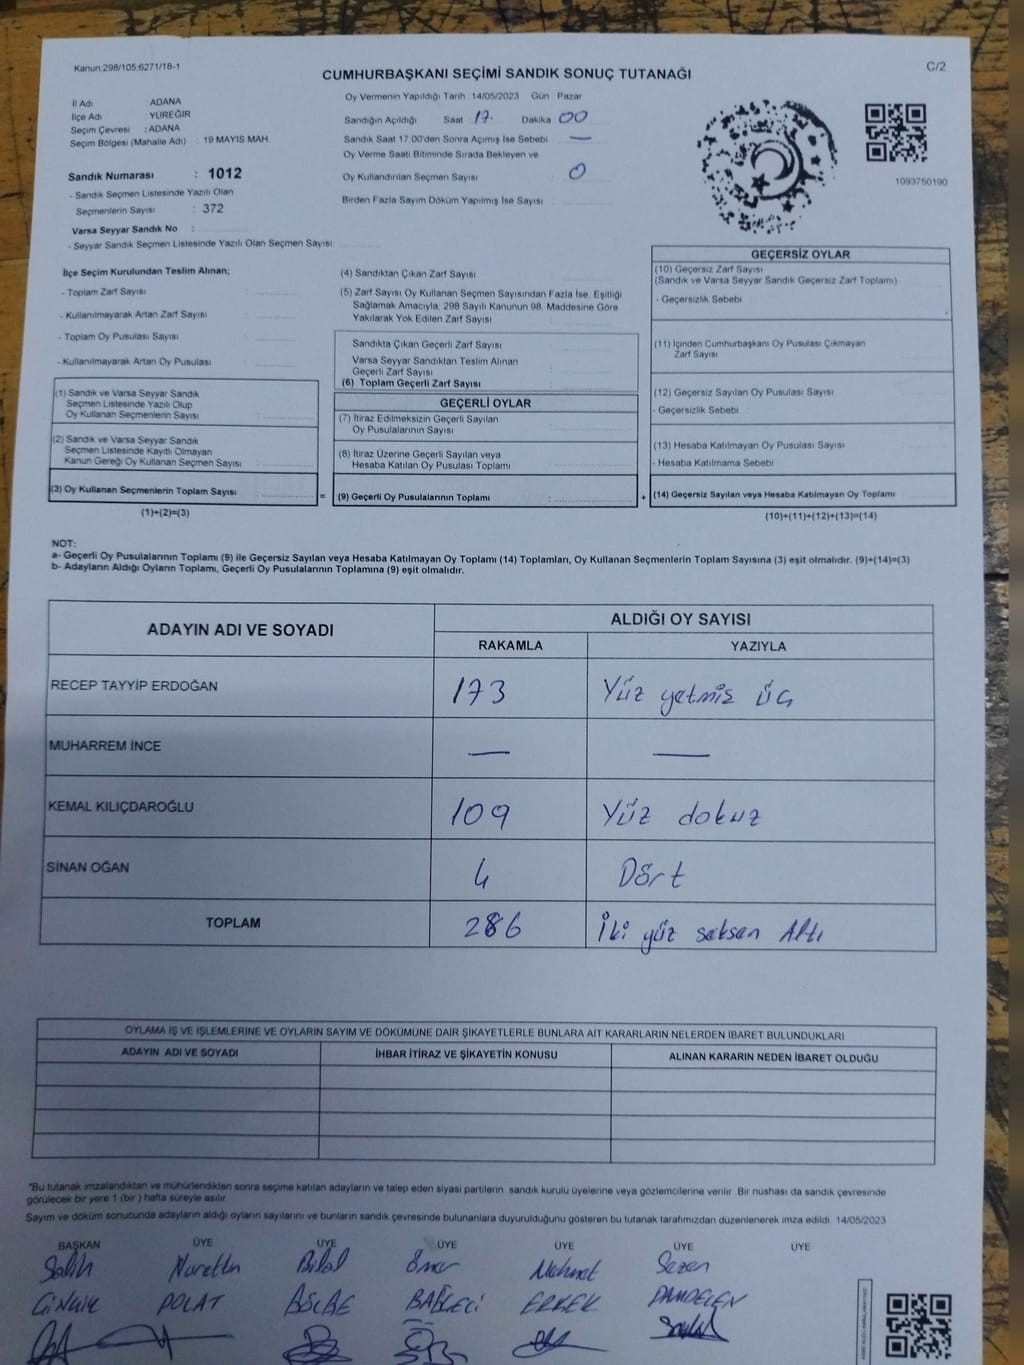 Kanun:298/105:6271/18-1
C/2
CUMHURBAŞKANI SEÇİMİ SANDIK SONUÇ TUTANAĞI
İl Adı ADANA
İlçe Adı YÜREĞİR
Seçim Çevresi : ADANA
Seçim Bölgesi (Mahalle Adı) : 19 MAYIS MAH.
Sandık Numarası : 1012
- Sandık Seçmen Listesinde Yazılı Olan
Seçmenlerin Sayısı : 372
Varsa Seyyar Sandık No :
- Seyyar Sandık Seçmen Listesinde Yazılı Olan Seçmen Sayısı
Oy Vermenin Yapıldığı Tarih 14/05/2023 Gün : Pazar
Sandığın Açıldığı Saat 17. Dakika 00
Sandık Saat 17.00'den Sonra Açılmış İse Sebebi : —
Oy Verme Saati Bitiminde Sırada Bekleyen ve
Oy Kullandırılan Seçmen Sayısı : 0
Birden Fazla Sayım Döküm Yapılmış İse Sayısı
1093750190
İlçe Seçim Kurulundan Teslim Alınan;
- Toplam Zarf Sayısı :
- Kullanılmayarak Artan Zarf Sayısı :
- Toplam Oy Pusulası Sayısı :
- Kullanılmayarak Artan Oy Pusulası :
(1) Sandık ve Varsa Seyyar Sandık
Seçmen Listesinde Yazılı Olup
Oy Kullanan Seçmenlerin Sayısı :
(2) Sandık ve Varsa Seyyar Sandık
Seçmen Listesinde Kayıtlı Olmayan
Kanun Gereği Oy Kullanan Seçmen Sayısı :
(3) Oy Kullanan Seçmenlerin Toplam Sayısı :
(1)+(2)=(3)
(4) Sandıktan Çıkan Zarf Sayısı
(5) Zarf Sayısı Oy Kullanan Seçmen Sayısından Fazla İse, Eşitliği
Sağlamak Amacıyla, 298 Sayılı Kanunun 98. Maddesine Göre
Yakılarak Yok Edilen Zarf Sayısı
Sandıkta Çıkan Geçerli Zarf Sayısı
Varsa Seyyar Sandıktan Teslim Alınan
Geçerli Zarf Sayısı
(6) Toplam Geçerli Zarf Sayısı
GEÇERLİ OYLAR
(7) İtiraz Edilmeksizin Geçerli Sayılan
Oy Pusulalarının Sayısı
(8) İtiraz Üzerine Geçerli Sayılan veya
Hesaba Katılan Oy Pusulası Toplamı
= (9) Geçerli Oy Pusulalarının Toplamı :
GEÇERSİZ OYLAR
(10) Geçersiz Zarf Sayısı
(Sandık ve Varsa Seyyar Sandık Geçersiz Zarf Toplamı)
- Geçersizlik Sebebi
(11) İçinden Cumhurbaşkanı Oy Pusulası Çıkmayan
Zarf Sayısı
(12) Geçersiz Sayılan Oy Pusulası Sayısı
- Geçersizlik Sebebi :
(13) Hesaba Katılmayan Oy Pusulası Sayısı
- Hesaba Katılmama Sebebi
+ (14) Geçersiz Sayılan veya Hesaba Katılmayan Oy Toplamı
(10)+(11)+(12)+(13)=(14)
NOT:
a- Geçerli Oy Pusulalarının Toplamı (9) ile Geçersiz Sayılan veya Hesaba Katılmayan Oy Toplamı (14) Toplamları, Oy Kullanan Seçmenlerin Toplam Sayısına (3) eşit olmalıdır. (9)+(14)=(3)
b- Adayların Aldığı Oyların Toplamı, Geçerli Oy Pusulalarının Toplamına (9) eşit olmalıdır.
ADAYIN ADI VE SOYADI
ALDIĞI OY SAYISI
RAKAMLA YAZIYLA
RECEP TAYYİP ERDOĞAN 173 Yüz yetmiş üç
MUHARREM İNCE — —
KEMAL KILIÇDAROĞLU 109 Yüz dokuz
SİNAN OĞAN 4 Dört
TOPLAM 286 İki yüz seksen Altı
OYLAMA İŞ VE İŞLEMLERİNE VE OYLARIN SAYIM VE DÖKÜMÜNE DAİR ŞİKAYETLERLE BUNLARA AİT KARARLARIN NELERDEN İBARET BULUNDUKLARI
ADAYIN ADI VE SOYADI İHBAR İTİRAZ VE ŞİKAYETİN KONUSU ALINAN KARARIN NEDEN İBARET OLDUĞU
*Bu tutanak imzalandıktan ve mühürlendikten sonra seçime katılan adayların ve talep eden siyasi partilerin sandık kurulu üyelerine veya gözlemcilerine verilir. Bir nüshası da sandık çevresinde
görülecek bir yere 1 (bir ) hafta süreyle asılır.
Sayım ve döküm sonucunda adayların aldığı oyların sayılarını ve bunların sandık çevresinde bulunanlara duyurulduğunu gösteren bu tutanak tarafımızdan düzenlenerek imza edildi. 14/05/2023
BAŞKAN ÜYE ÜYE ÜYE ÜYE ÜYE ÜYE
Salih Nurettin Bilal Ömer Mehmet Sezen
POLAT BAĞCI ERKEK